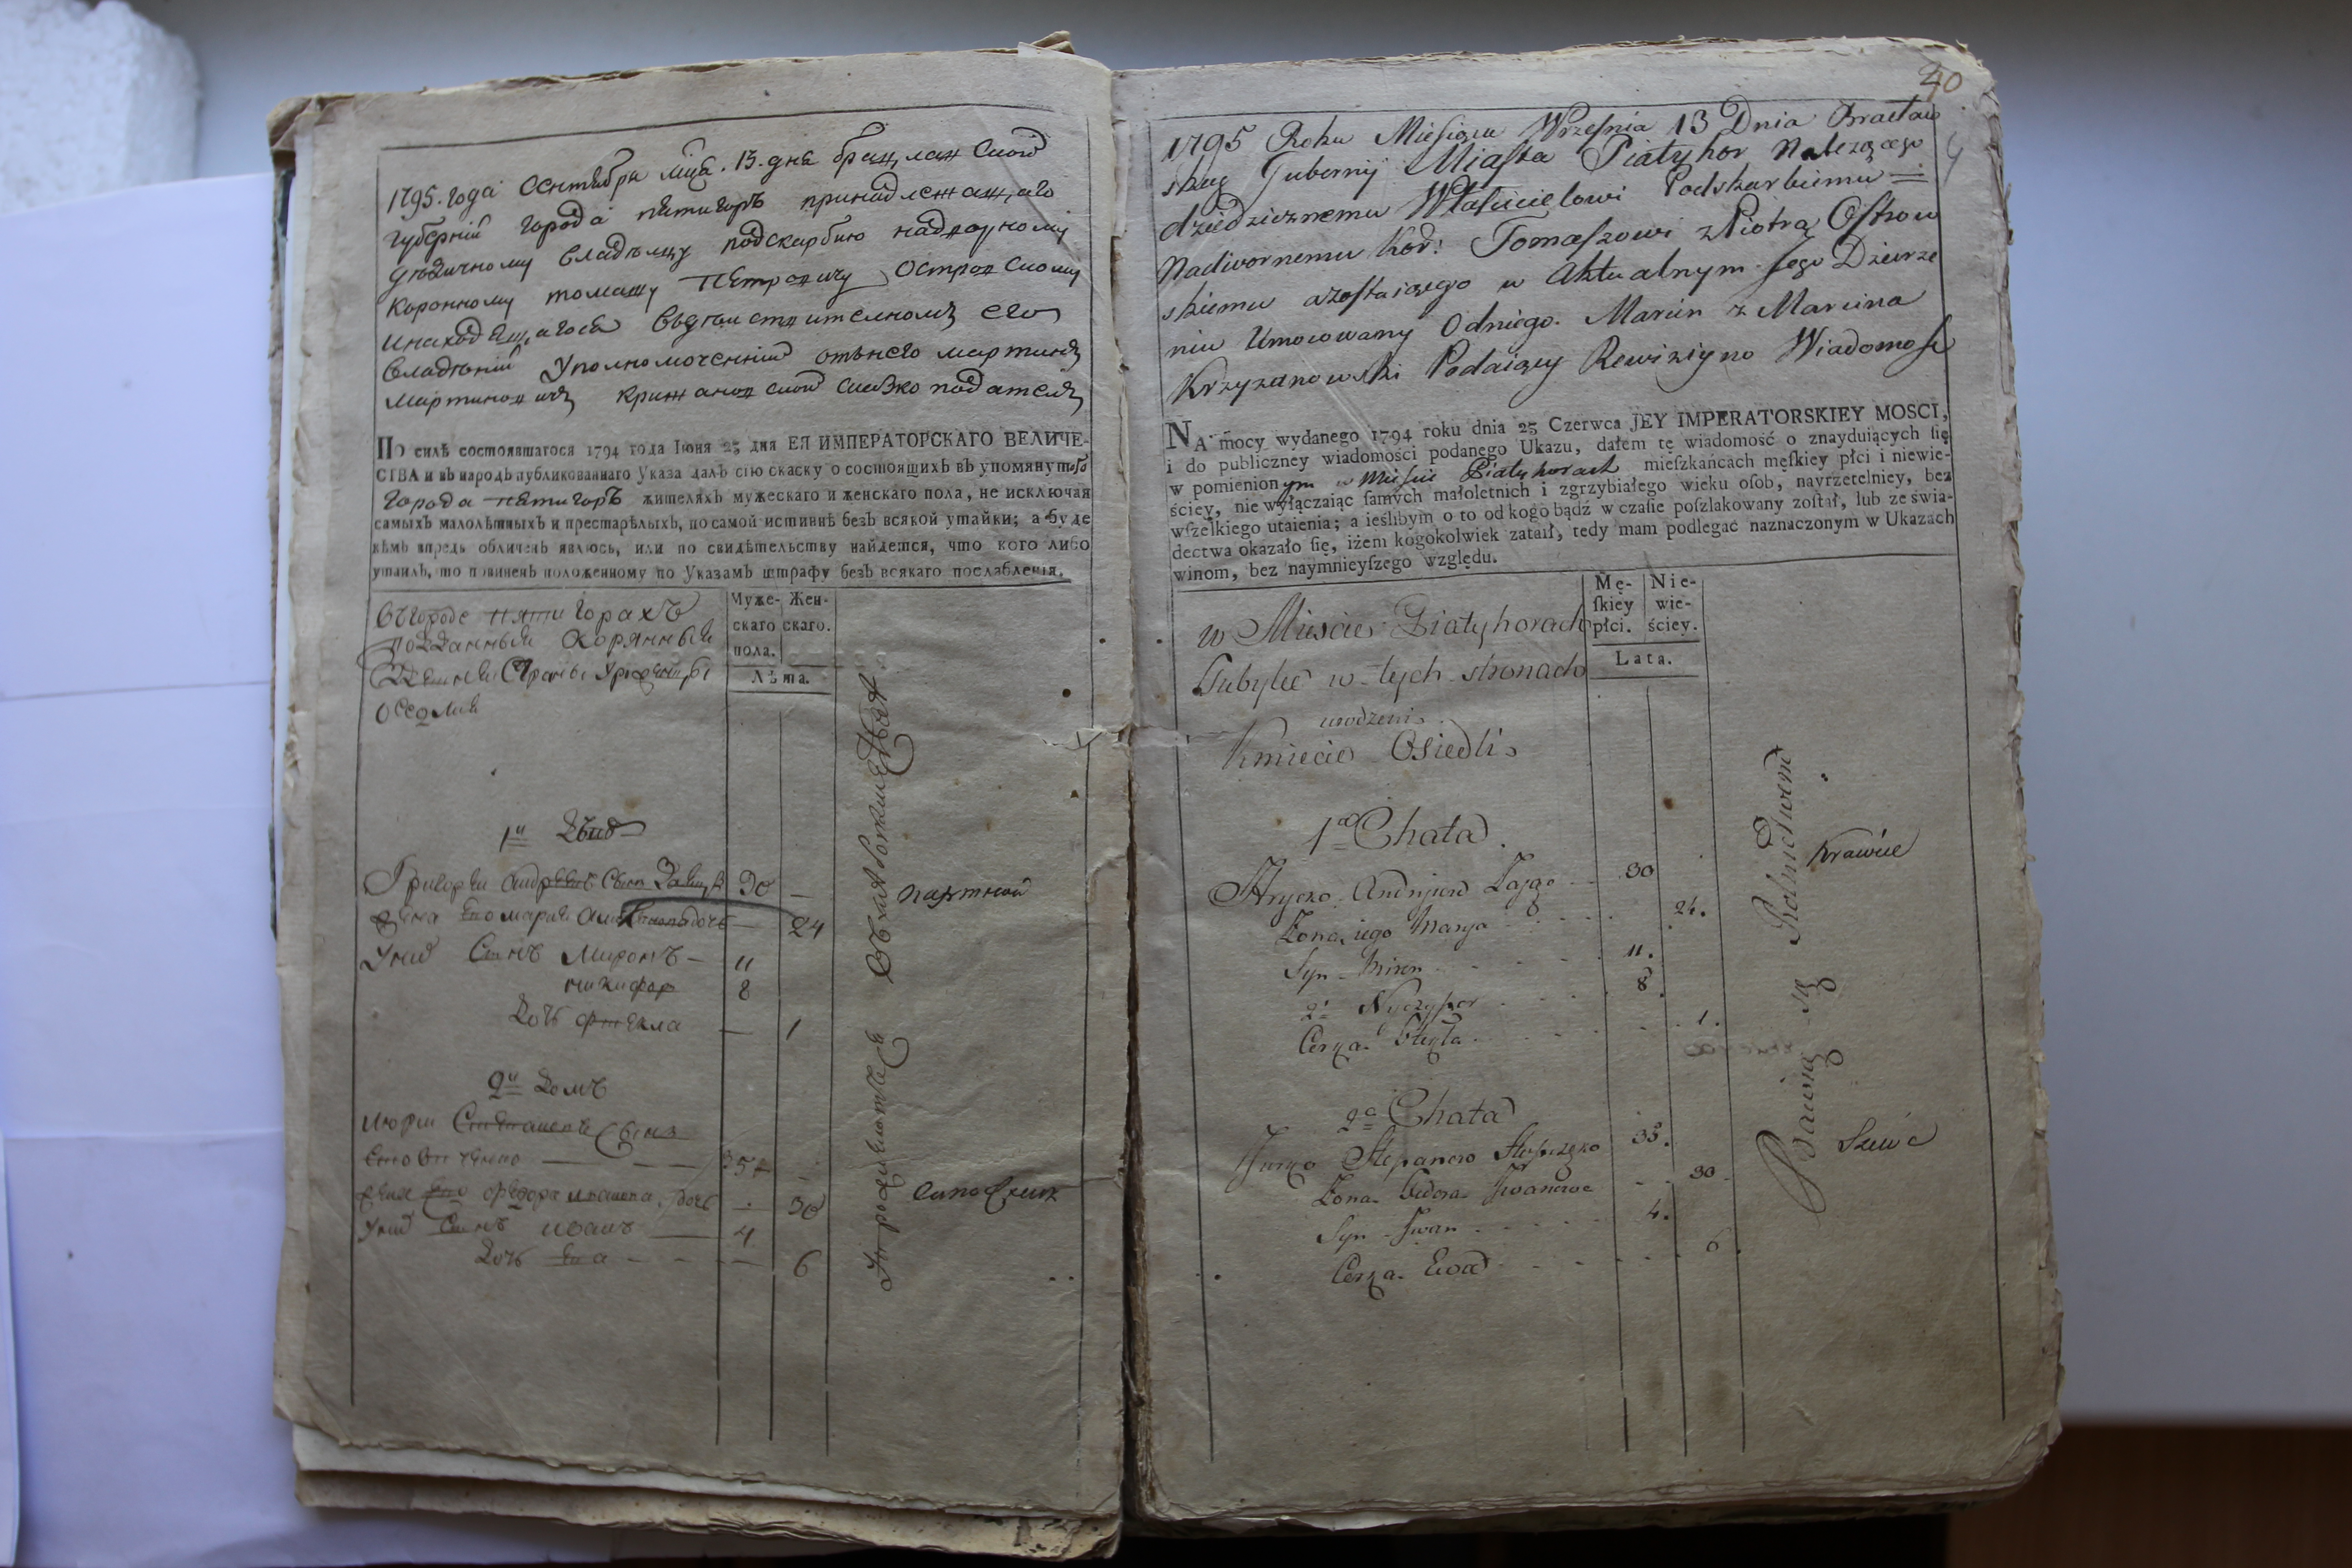 1795. года Сентября мца. 13. дня брацлавской
губернии города пятигоръ принадлежащаго
дѣдичному владѣлцу подскарбию надворному
коронному томашу петровичу островскому
инаходящагося вдѣйствителномъ его
владѣнии Уполномоченний отънего мартинъ
мартиновичъ крижановской
ПО силѣ состоявшагося 1794 года Іюня 23 дня ЕЯ ИМПЕРАТОРСКАГО ВЕЛИЧЕ-
СТВА и въ народъ публикованнаго Указа далъ сію скаску о состоящихъ въ упомянутого
города пятигоръ жителяхъ мужескаго и женскаго пола, не исключая
самыхъ малолѣтныхъ и престарѣлыхъ, по самой истиннѣ безъ всякой утайки; а буде
кѣмъ впредь обличенъ явлюсь, или по свидѣтельству найдется, что кого либо
утаилъ, то повиненъ положенному по Указамъ штрафу безъ всякаго послабленія.
Муже- Жен-
скаго скаго.
пола.
Лѣта.
въгороде пятигорахъ
подданныи
оседлие
1й
Григорей Андреевъ Сынъ 30 —
жена его мария — 24
Унид Синъ Миронъ — 11
никифор 8
Дочь фтекла — 1
портной
2й Домъ
юрки Степановъ Сынъ
35
жена его федора иванова дочь — 30
Унид Синъ иванъ — 4
Дочь Ева — — — 6
сапожник
40
1795 Roku Miesiąca Wrzesnia 13 Dnia Bracław
skiey Gubernij Miasta Piatyhor Należącego
dziedzicznemu Włascicielowi Podskarbiemu
Nadwornemu Kor: Tomaszowi z Piotra Ostrow
skiemu azostaiącego w Aktualnym Jego Dzierze
niu Umocowany Odniego. Marcin z Marcina
Krzyzanowski Podaiący Rewizijno Wiadomosc
NA mocy wydanego 1794 roku dnia 23 Czerwca JEY IMPERATORSKIEY MOSCI,
i do publiczney wiadomości podanego Ukazu, dałem tę wiadomość o znayduiących ſię
w pomienionym w Miescie Piatyhorach mieſzkańcach męſkiey płci i niewie-
ściey, nie wyłączaiąc ſamych małoletnich i zgrzybiałego wieku oſob, nayrzetelniey, bez
wſzelkiego utaienia; a ieślibym o to od kogo bądź w czaſie poſzlakowany zoſtał, lub ze świa-
dectwa okazało ſię, iżem kogokolwiek zataił, tedy mam podlegać naznaczonym w Ukazach
winom, bez naymnieyſzego względu.
Mę- Nie-
ſkiey wie-
płci. ściey.
Lata.
w Miescie Piatyhorach
Tubylce w tych stronach
urodzeni
Kmiecie Osiedli
1a Chata
Hryczo Andrijow 30
Zona iego Marya 24.
Syn Miron 11.
2i Nyczypor 8.
Corka 1.
Krawiec
2a Chata
Jurko Stepanow 35.
Zona Fedora Iwanowa 30
Syn Iwan 4.
Corka Ewa 6.
Szewc
Bawią się Rolnictwem